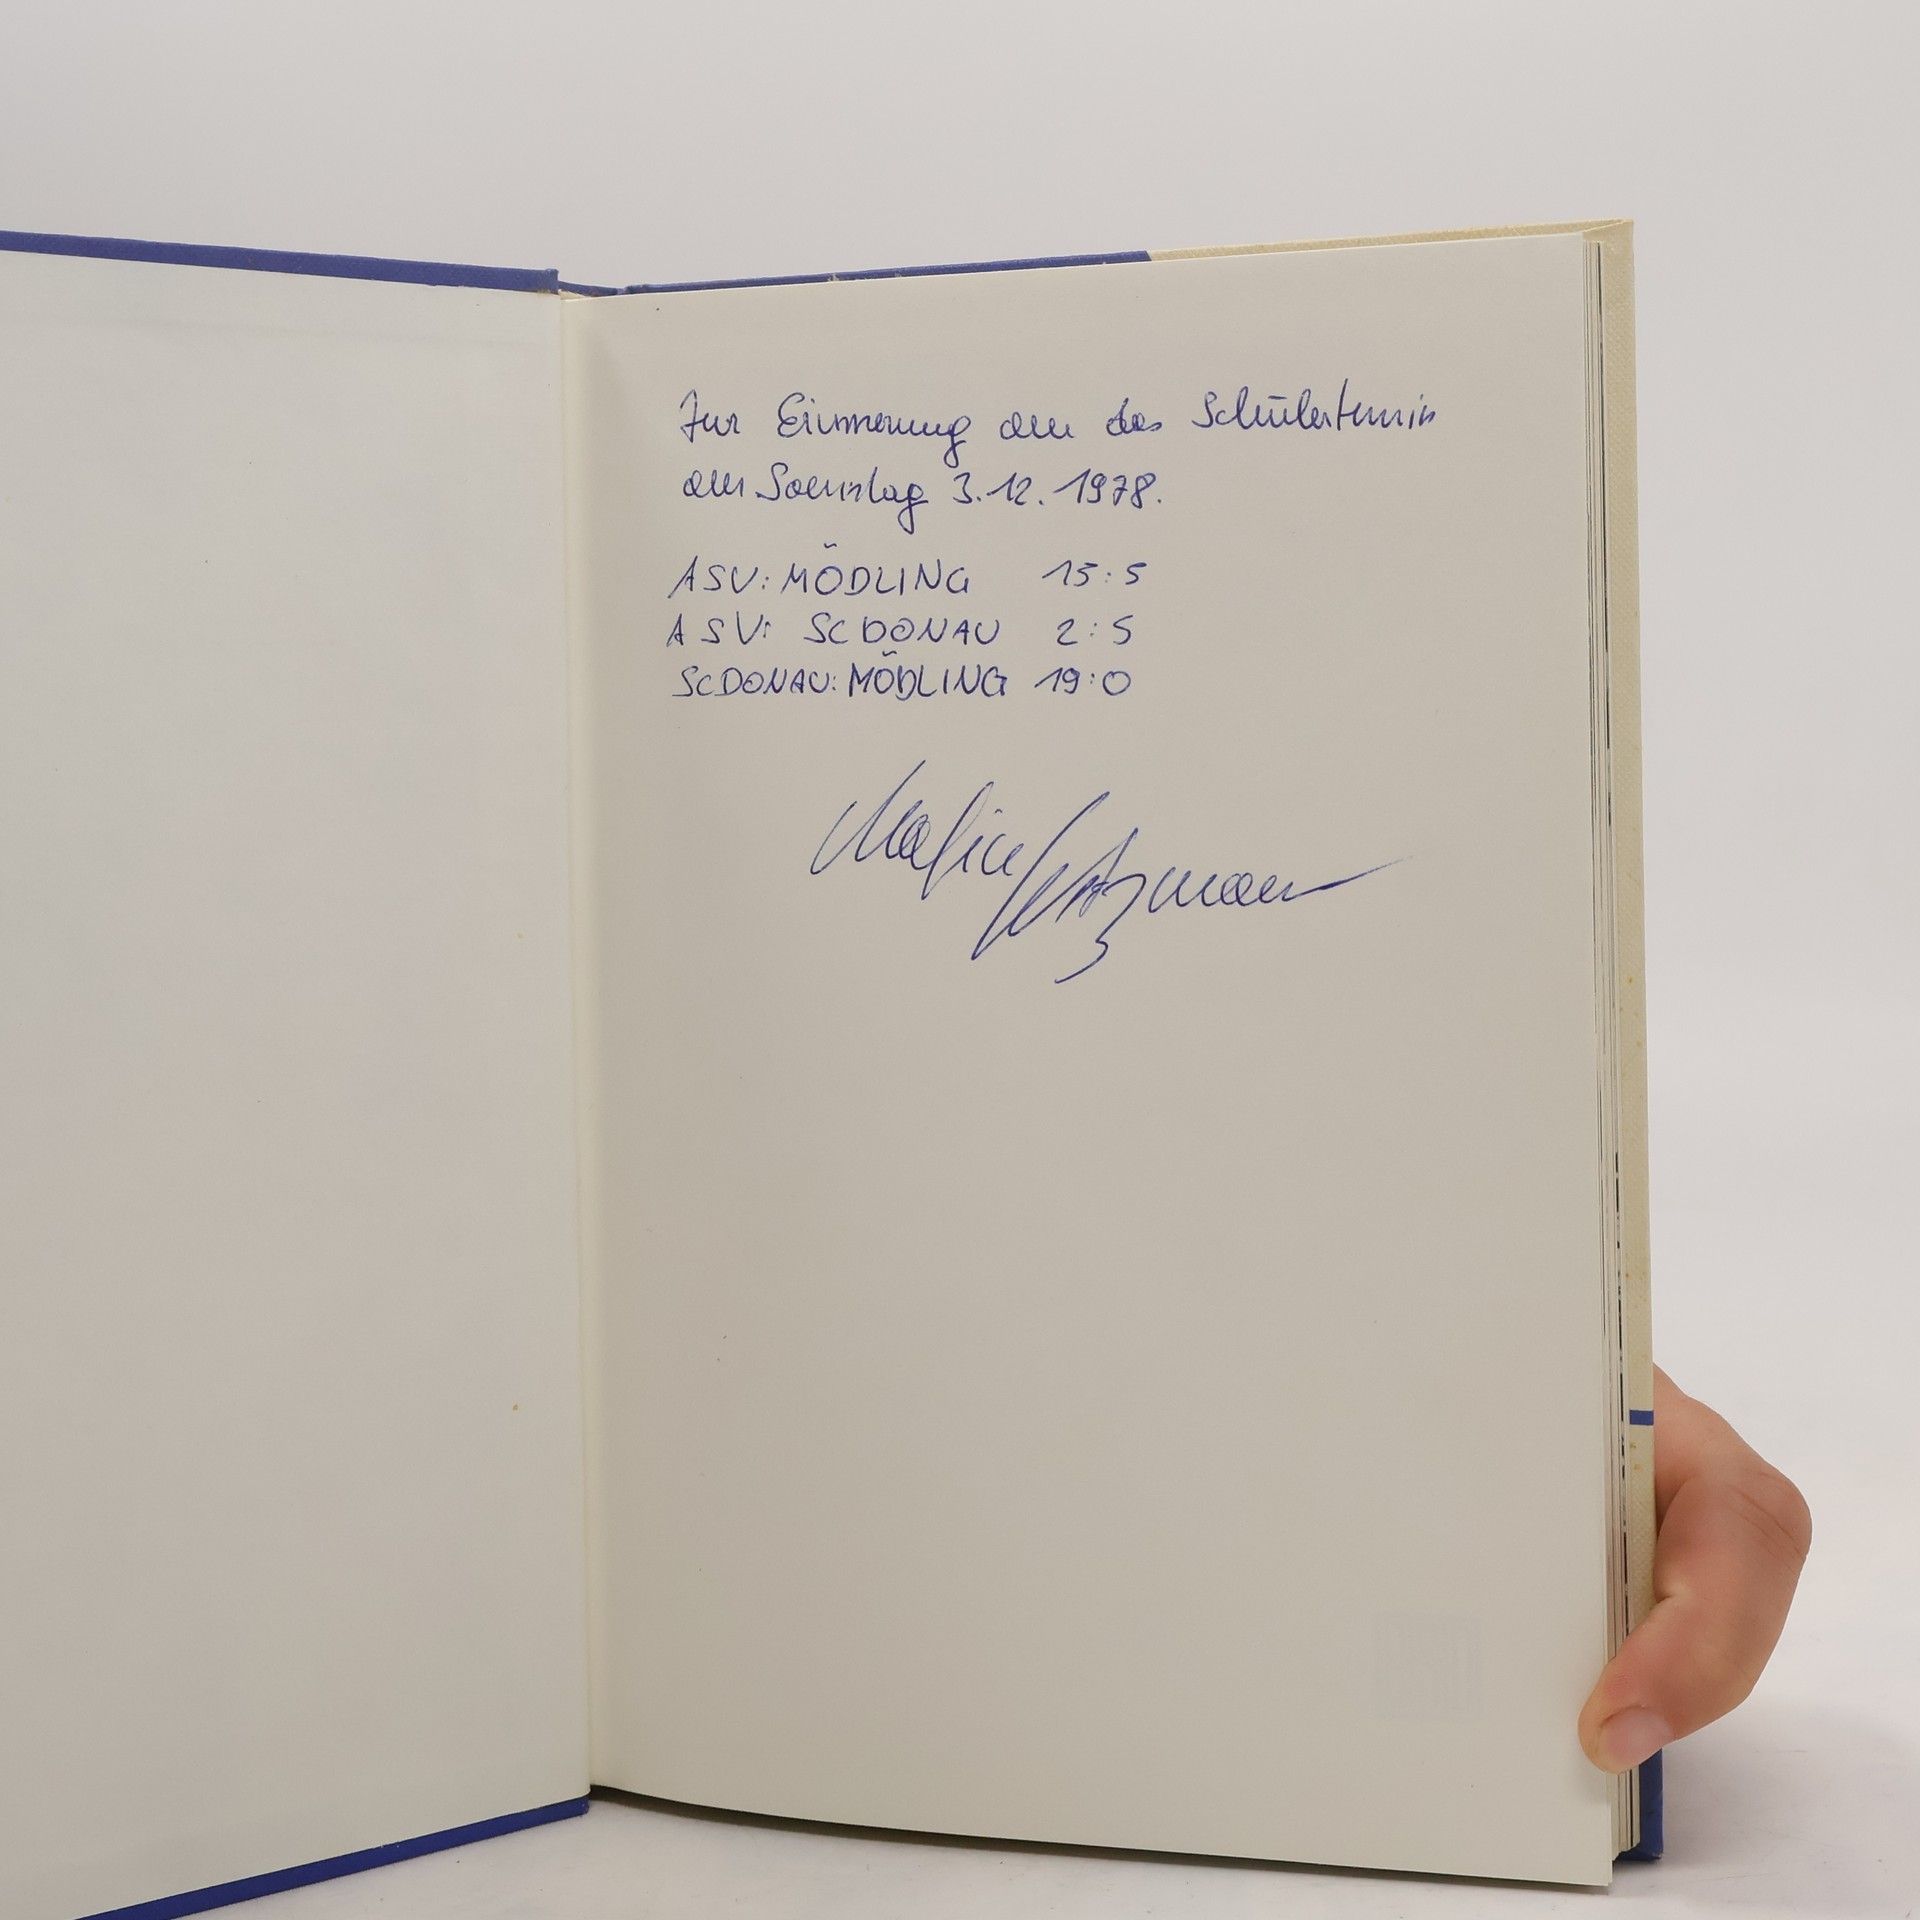 Zur Erinnerung an das Schülerturnier
am Samstag 3.12.1978.
ASV: MÖDLING 15:5
ASV: SC DONAU 2:5
SC DONAU: MÖDLING 19:0